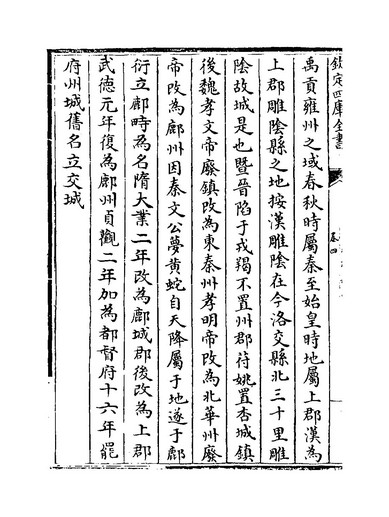 欽定四庫全書
卷四
禹貢雍州之域春秋時屬秦至始皇時地屬上郡漢為
上郡雕陰縣之地按漢雕陰在今洛交縣北三十里雕
陰故城是也暨晉陷于戎羯不置州郡苻姚置杏城鎮
後魏孝文帝廢鎮改為東秦州孝明帝改為北華州廢
帝改為鄜州因秦文公夢黄蛇自天降屬于地遂于鄜
衍立鄜畤為名隋大業二年改為鄜城郡後改為上郡
武德元年復為鄜州貞觀二年加為都督府十六年罷
府州城舊名立交城